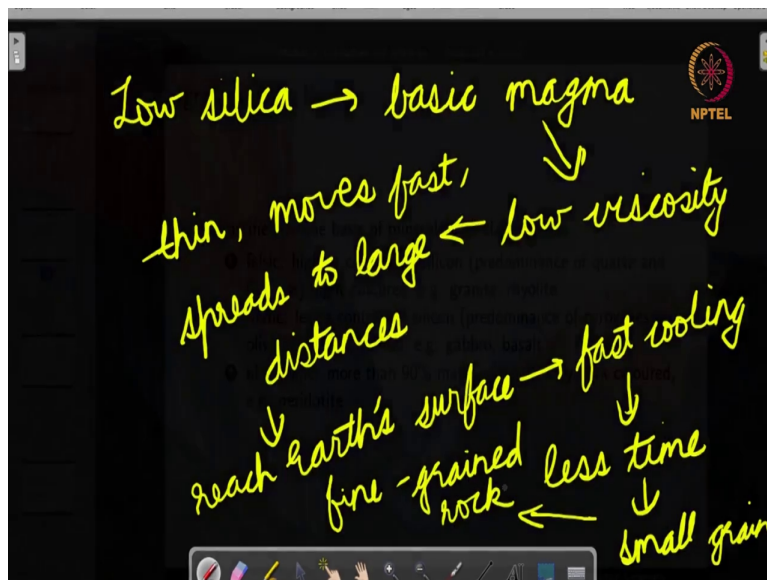 NPTEL
Low silica → basic magma
↓
thin, moves fast, ← low viscosity
spreads to large
distances
↓
reach Earth's surface → fast cooling
↓
less time
↓
small grain
fine-grained ←
rock